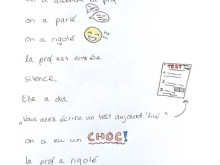 on a parlé
on a rigolé
la prof est entrée
Silence.
Elle a dit
"Vous allez écrire un test aujourd'hui"
TEST
on a eu un CHOC!
la prof a rigolé